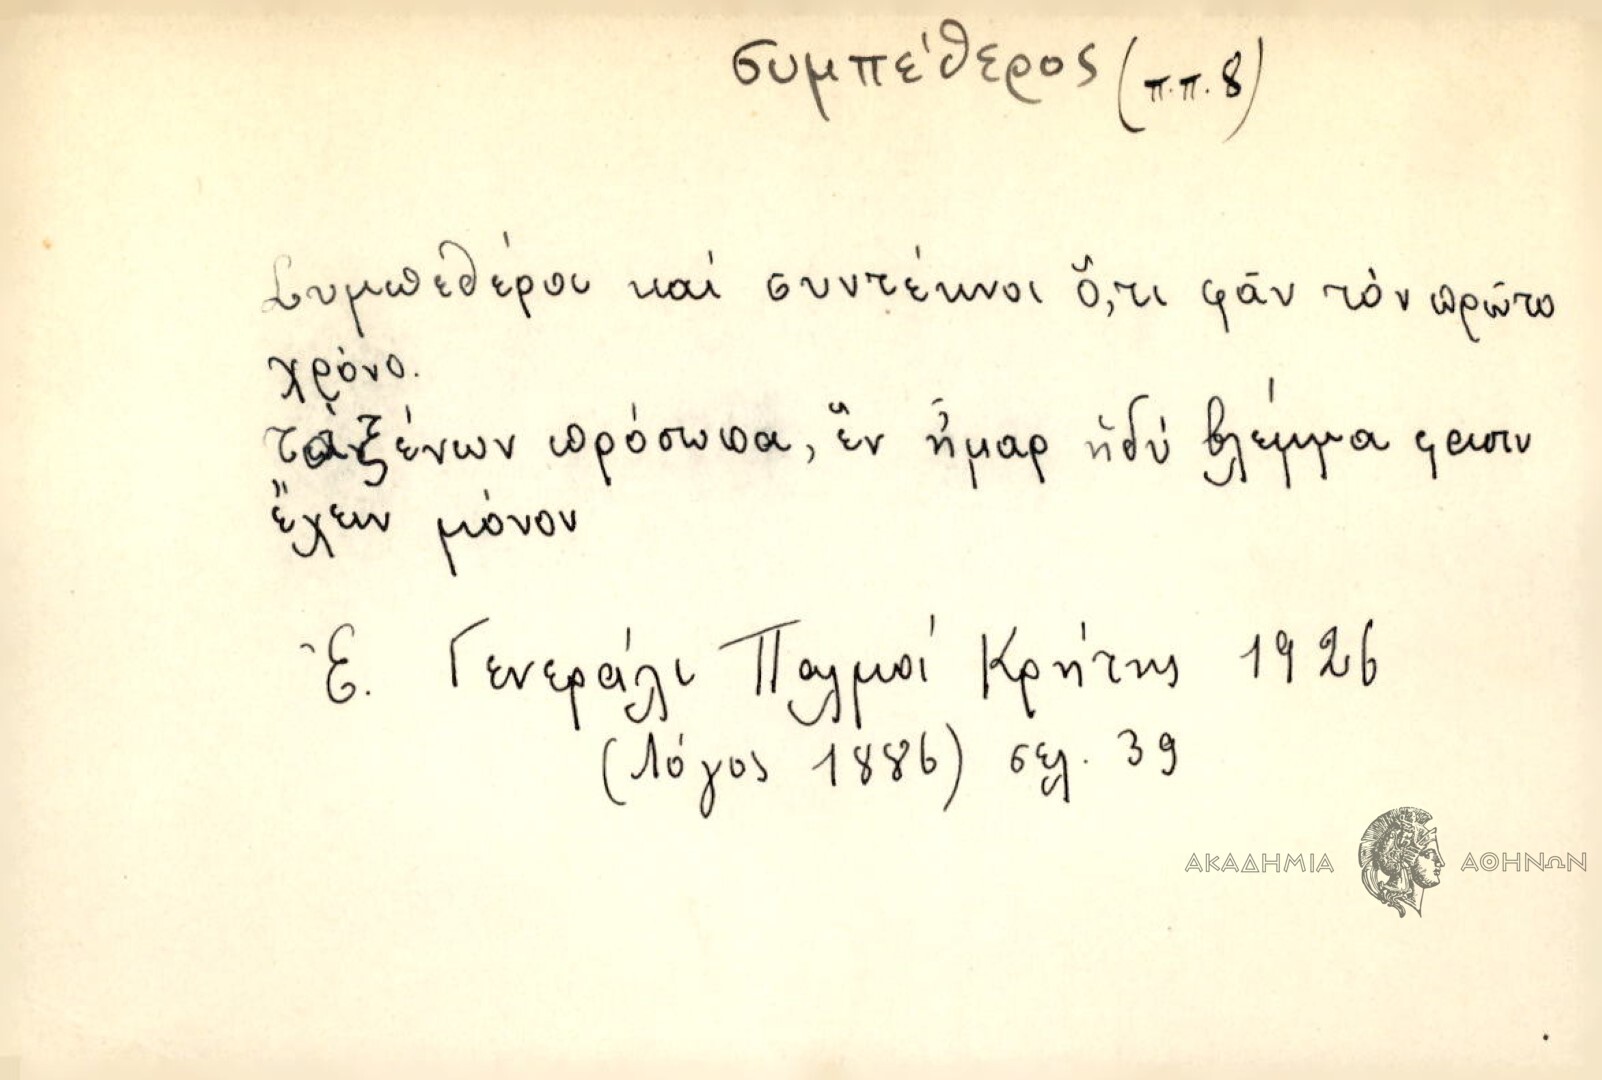 συμπέθερος (π.π. 8)
Συμπεθέροι καί συντέκνοι ὅ,τι φᾶν τὸν πρῶτο
χρόνο.
τὰ ξένων πρόσωπα, ἓν ἦμαρ ἡδύ βλέμμα
ἔχειν μόνον
Ἐ. Γενεράλι Παλμοί Κρήτης 1926
(Λόγος 1886) σελ. 39
ΑΚΑΔΗΜΙΑ ΑΘΗΝΩΝ